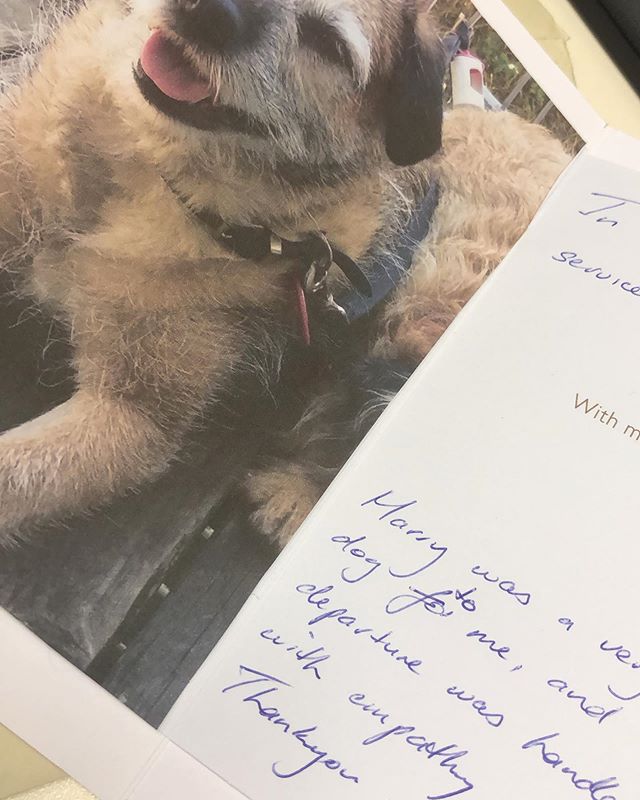 In
service
With m
Harry was a very
dog to me, and
departure was handle
with empathy
Thankyou